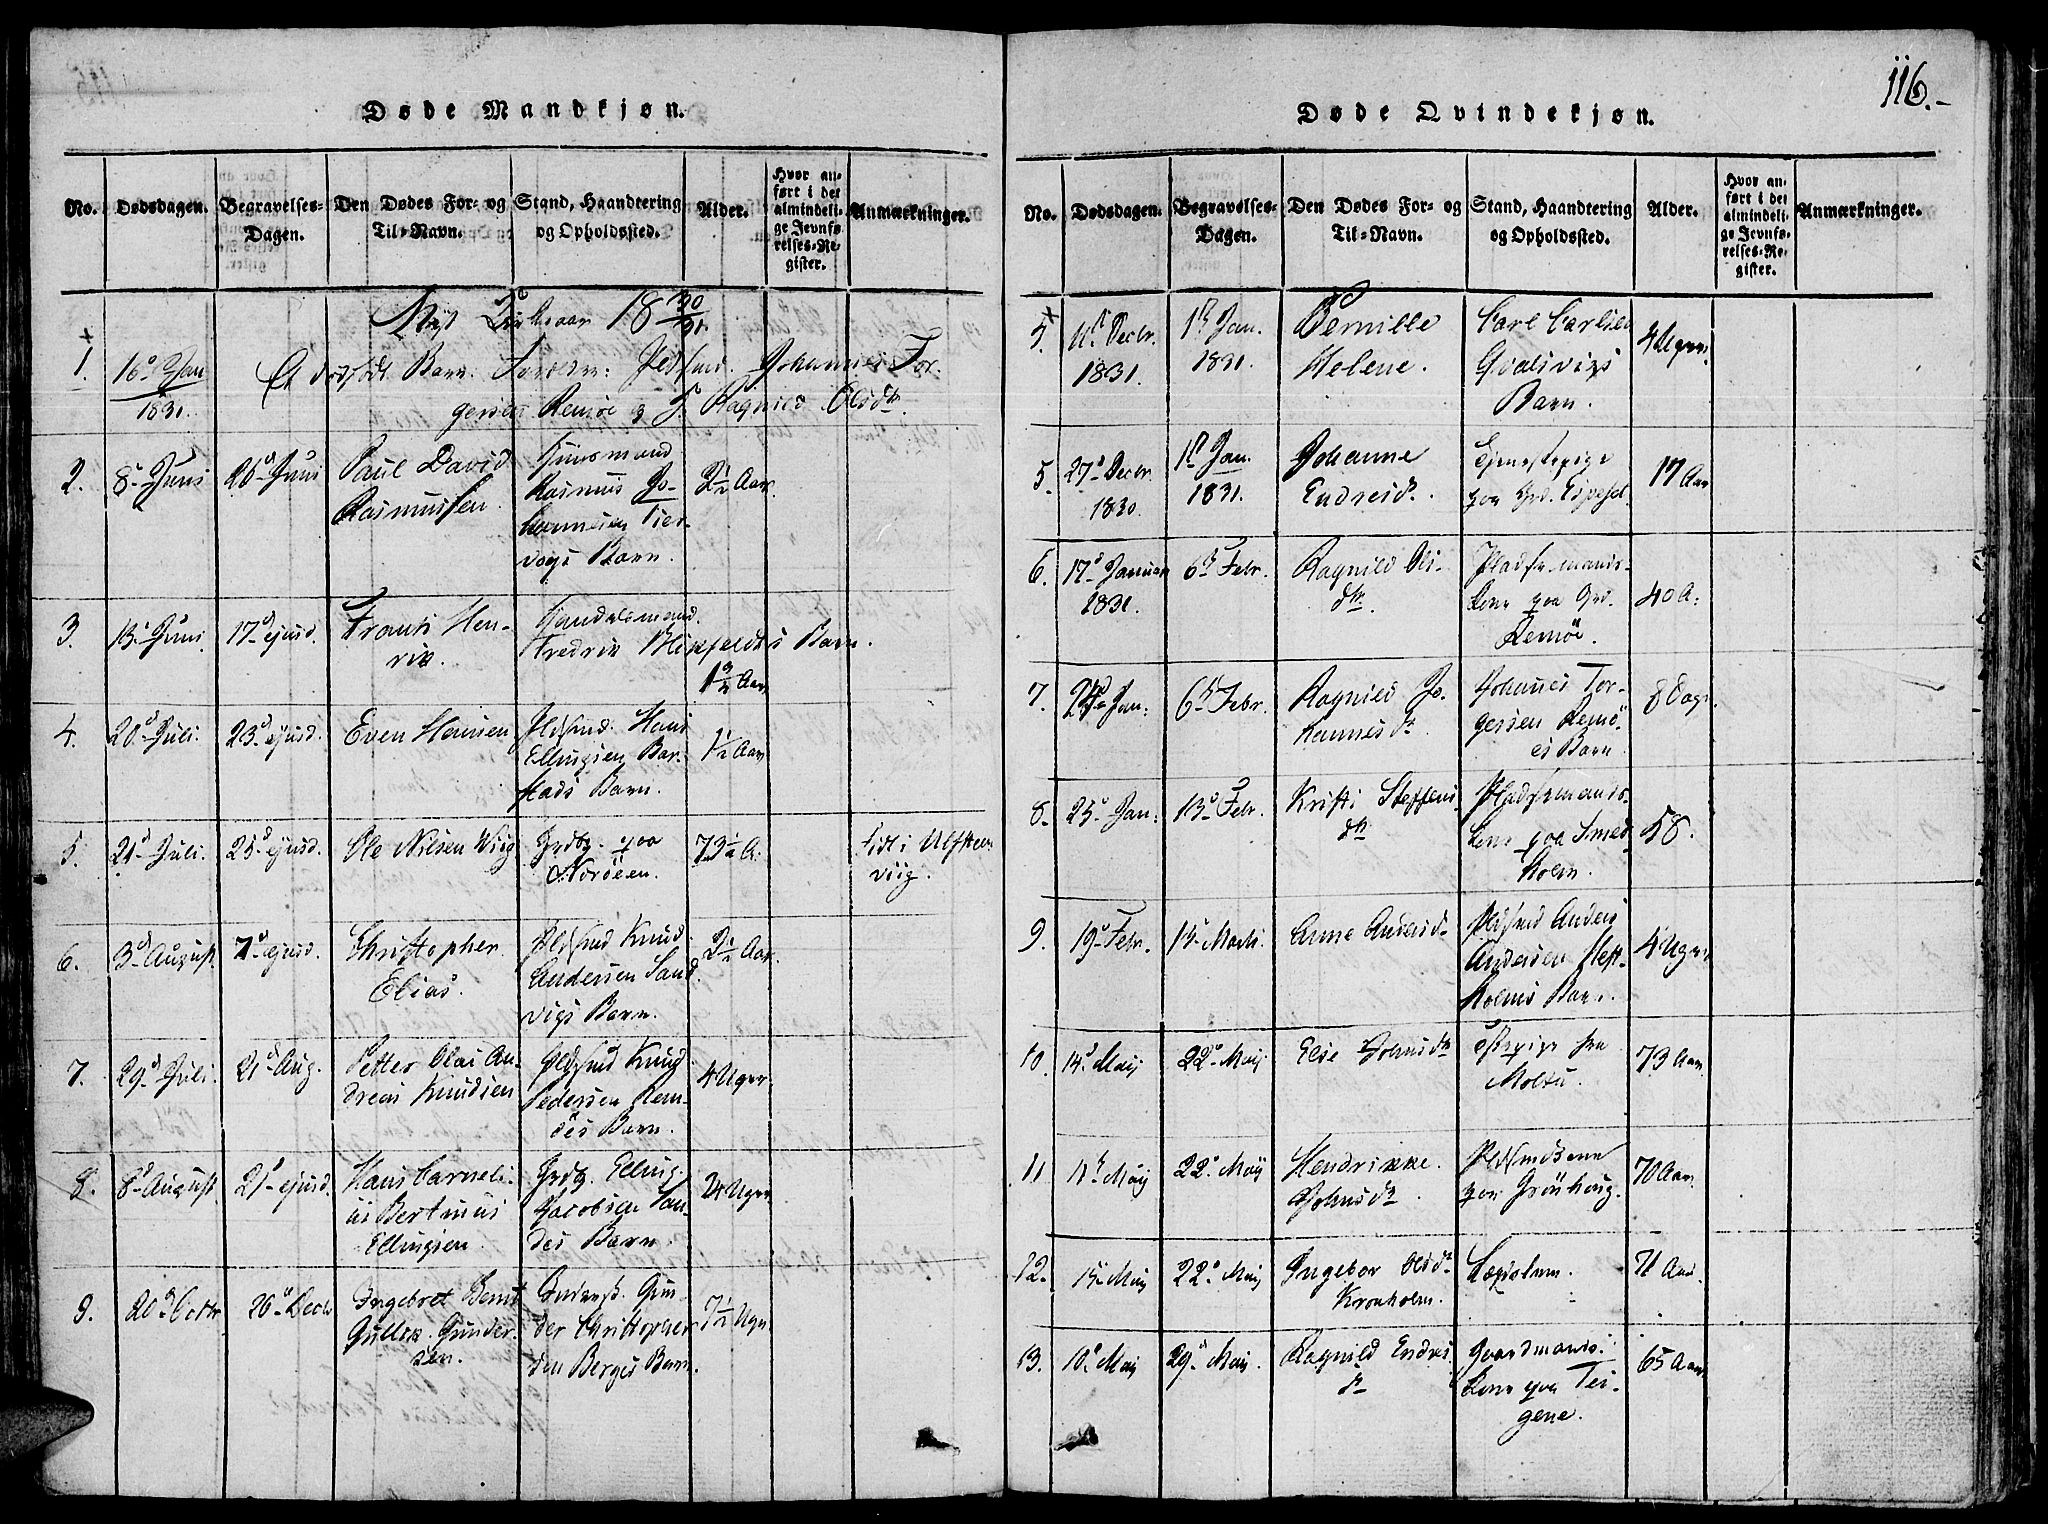 116.-
Døde Mandkjøn.
No. Dødsdagen. Begravelses-Dagen. Den Dødes For- og Til-Navn. Stand, Haandtering og Opholdssted. Alder. Hvor anført i det almindelige Jevnførelses-Register. Anmærkninger.
Nyt Kirkeaar 1830/31.
1. 16d Jan 1831. Et dødfødt Barn. Forældre: Johannes Tor-
gersen Remöe og Ragnild Olsdr.
2. 8d Juni 26d Juni Paul David
Rasmussen. Huusmand
Rasmus Jo-
hannesen
vogs Barn. 2½ Aar.
3. 13d Juni 17d ejusd. Frants Hen-
rik. Handelsmand
Fredrik Blixfeldts Barn.
1¾ Aar
4. 20d Juli. 23d ejusd. Even Hansen Hans
Ellingsen Bar-
stads Barn. 1½ Aar
5. 21d Juli. 25d ejusd. Ole Nilsen Wiig paa
Noröeen. 73½ A. Födt i Ulfsteen
viig.
6. 3d August. 7d ejusd. Christopher
Elias. Knud
Andersen Sand
vigs Barn. 2½ Aar.
7. 29d Juli. 21d Aug. Petter Olai An-
dreas Knudsen Knud
Pedersen Rem-
öes Barn. 4 Uger
8. 8d August 21d ejusd. Hans Carneli-
us Bertinus
Ellingsen. Elling
Jacobsen San-
des Barn. 24 Uger
9. 20d Octbr. 26d Decbr Ingebret Bernt
Gullak Gunder-
sen. Gun-
der Christopher
sen Berges Barn. 7½ Ugr.
Døde Qvindekjøn.
No. Dødsdagen. Begravelses-Dagen. Den Dødes For- og Til-Navn. Stand, Haandtering og Opholdssted. Alder. Hvor anført i det almindelige Jevnførelses-Register. Anmærkninger.
11d Decbr.
1831. 1d Jan.
1831. Pernille
Helene. Carl Carlsen
Qvalsvigs
Barn. 4 Uger.
5. 27d Decbr.
1830. 1d Jan.
1831. Johanne
Endresdr. Tjenestepige
paa Grd. Espeset. 17 Aar
6. 17d Januar
1831. 6d Febr. Ragnild Ols-
dtr. Pladsemands-
kone paa Grd.
Remöe. 40 A.
7. 24d Jan. 6d Febr. Ragnild Jo-
hannesdr. Johannes Tor-
gersen Remö-
es Barn. 8 Dage.
8. 25d Jan. 13d Febr. Kristi Steffens
dtr. Pladsemands-
kone paa Smed
holm. 58.
9. 19d Febr. 14d Marts. Anne Andersdr. Anders
Andersen
holms Barn. 4 Uger
10. 14d Maij 22d Maij Else Johnsdtr. fra
Moltu. 73 Aar.
11. 11d Maij 22d Maij Hendrikke.
Johnsdtr. paa Grönhaug. 70 Aar.
12. 15d Maij 22d Maij Ingebor Olsdr
Kronholm. Lægdslem. 71 Aar.
13. 10d Maij 29d Maij. Ragnild Endres
dtr Gaardmands-
kone paa Tei-
gene. 65 Aar